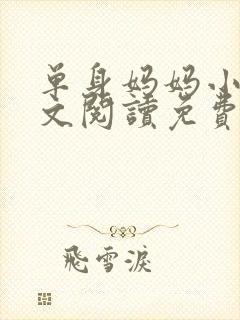 单身妈妈小
文閱讀免費
飛雪淚